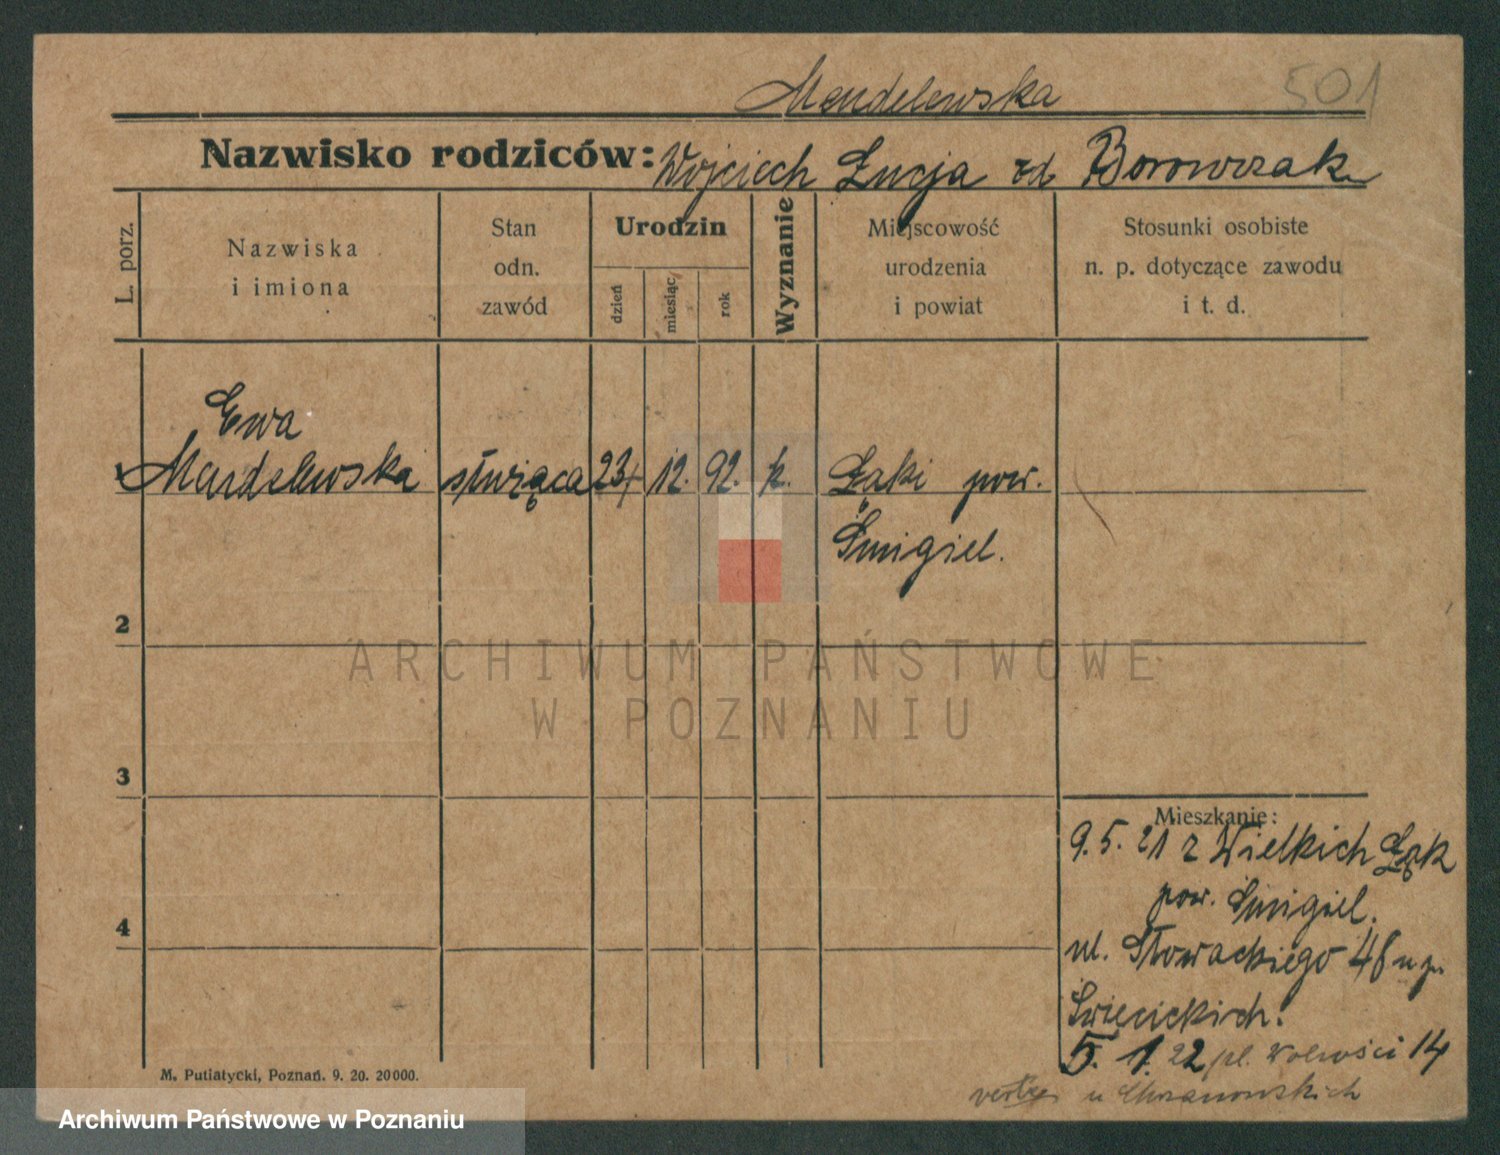 Mendelewska 501
Nazwisko rodziców: Wojciech Łucja zd Borowczak
L. porz.
Nazwiska
i imiona
Stan
odn.
zawód
Urodzin
dzień
miesiąc
rok
Wyznanie
Miejscowość
urodzenia
i powiat
Stosunki osobiste
n. p. dotyczące zawodu
i t. d.
Ewa
1 Mendelewska służąca 23/ 12. 92. k. Łąki pow.
Śmigiel.
2
ARCHIWUM PAŃSTWOWE
W POZNANIU
3
Mieszkanie:
9. 5. 21 z Wielkich Łąk
pow. Śmigiel.
4
ul. Słowackiego 48 u p.
Święcickich.
5. 1. 22 pl. Wolności 14
verte u Chrzanowskich
M. Putiatycki, Poznań. 9. 20. 20000.
Archiwum Państwowe w Poznaniu